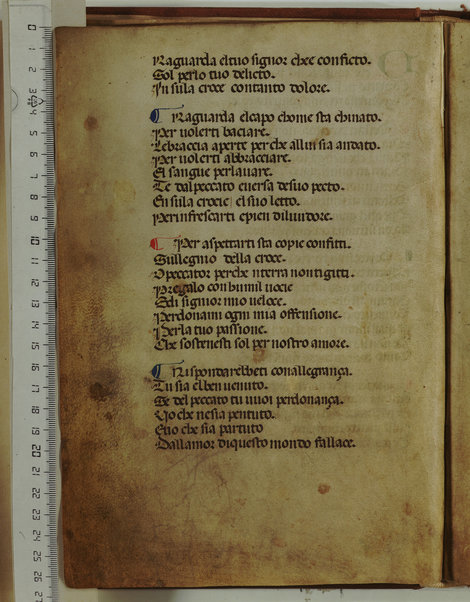 Raguarda eltuo signor chee conficto.
Sol perlo tuo delicto.
In sula croce contanto dolore.
Raguarda elcapo chome sta chinato.
Per volerti baciare.
Lebraccia aperte perche allui sia andato.
Per volerti abbracciare.
El sangue perlavare.
Te dalpeccato e versa desuo pecto.
En sula crocie el suo letto.
Per infrescarti e pien di lividore.
Per aspettarti sta copie confitti.
Sullegnio della croce.
O peccator perche nterra non ti gitti.
Pregalo con humil vocie
Edi signior mio veloce.
Perdonami ogni mia offensione.
Per la tuo passione.
Che sostenesti sol per nostro amore.
Rispondarebbeti conallegrança.
Tu sia elbenvenuto.
Se del peccato tu vuoi perdonança.
Vo che ne sia pentuto.
E vo che sia partuto
Dallamor di questo mondo fallace.